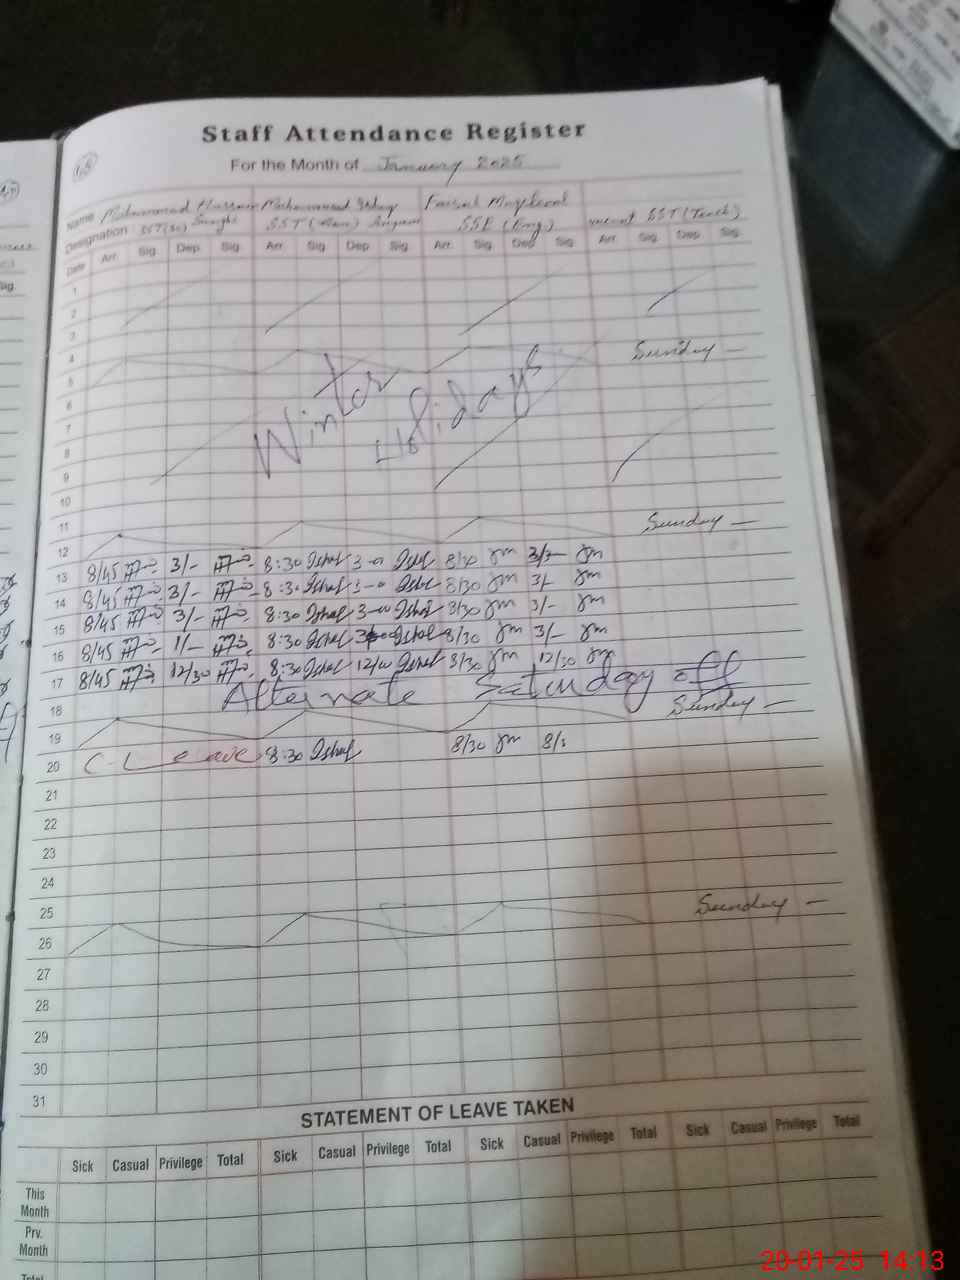 Staff Attendance Register
For the Month of January 2025
Name Muhammad Hussain Muhammad Ishaq Faisal Maqbool
Designation SST(Sc) SST( SSE (Eng) vacant SST (Tech)
Date Arr. Sig. Dep. Sig. Arr. Sig. Dep. Sig. Arr. Sig. Dep. Sig. Arr. Sig. Dep. Sig.
1
2
3
4
5 Sunday —
6
7
8
9
10
Winter Holidays
11
12 Sunday —
13 8/45 3/- 8:30 Ishaq 3-00 Ishaq 8/30 fm 3/- fm
14 8/45 3/- 8:30 Ishaq 3-00 Ishaq 8/30 fm 3/- fm
15 8/45 3/- 8:30 Ishaq 3-00 Ishaq 8/30 fm 3/- fm
16 8/45 1/- 8:30 Ishaq 3-00 Ishaq 8/30 fm 3/- fm
17 8/45 12/30 8:30 Ishaq 12/00 Ishaq 8/30 fm 12/30 fm
18 Alternate Saturday off
19 Sunday —
20 C-Leave 8:30 Ishaq 8/30 fm 8/3
21
22
23
24
25
26 Sunday —
27
28
29
30
31
STATEMENT OF LEAVE TAKEN
Sick Casual Privilege Total Sick Casual Privilege Total Sick Casual Privilege Total Sick Casual Privilege Total
This Month
Prv. Month
Total
20-01-25 14:13